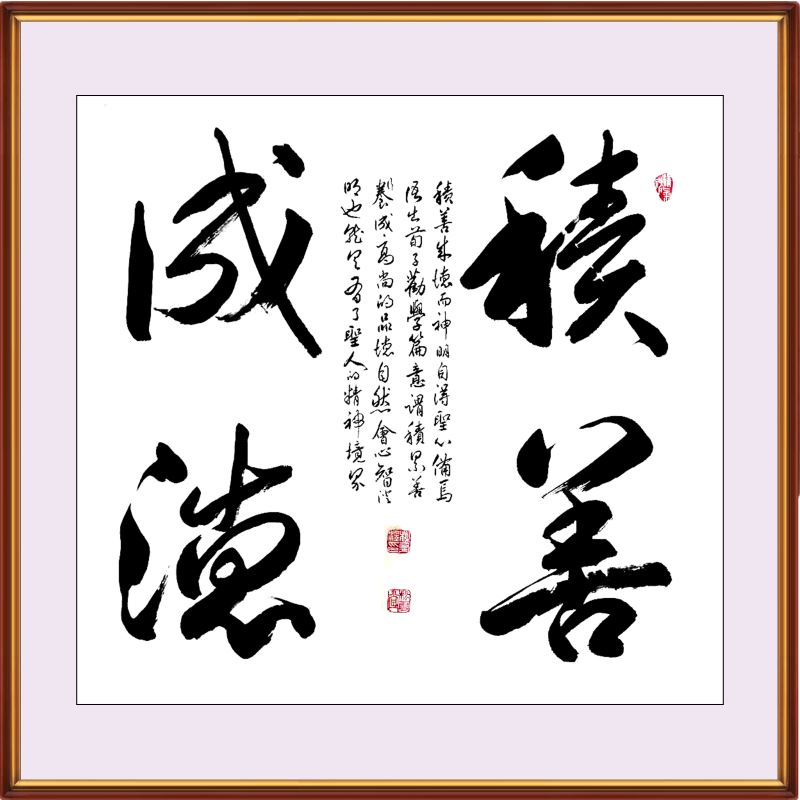 積善
成德
積善成德而神明自得聖心備焉
語出荀子勸學篇意謂積累善
養成高尚的品德自然會心智澄
明也就具有了聖人的精神境界